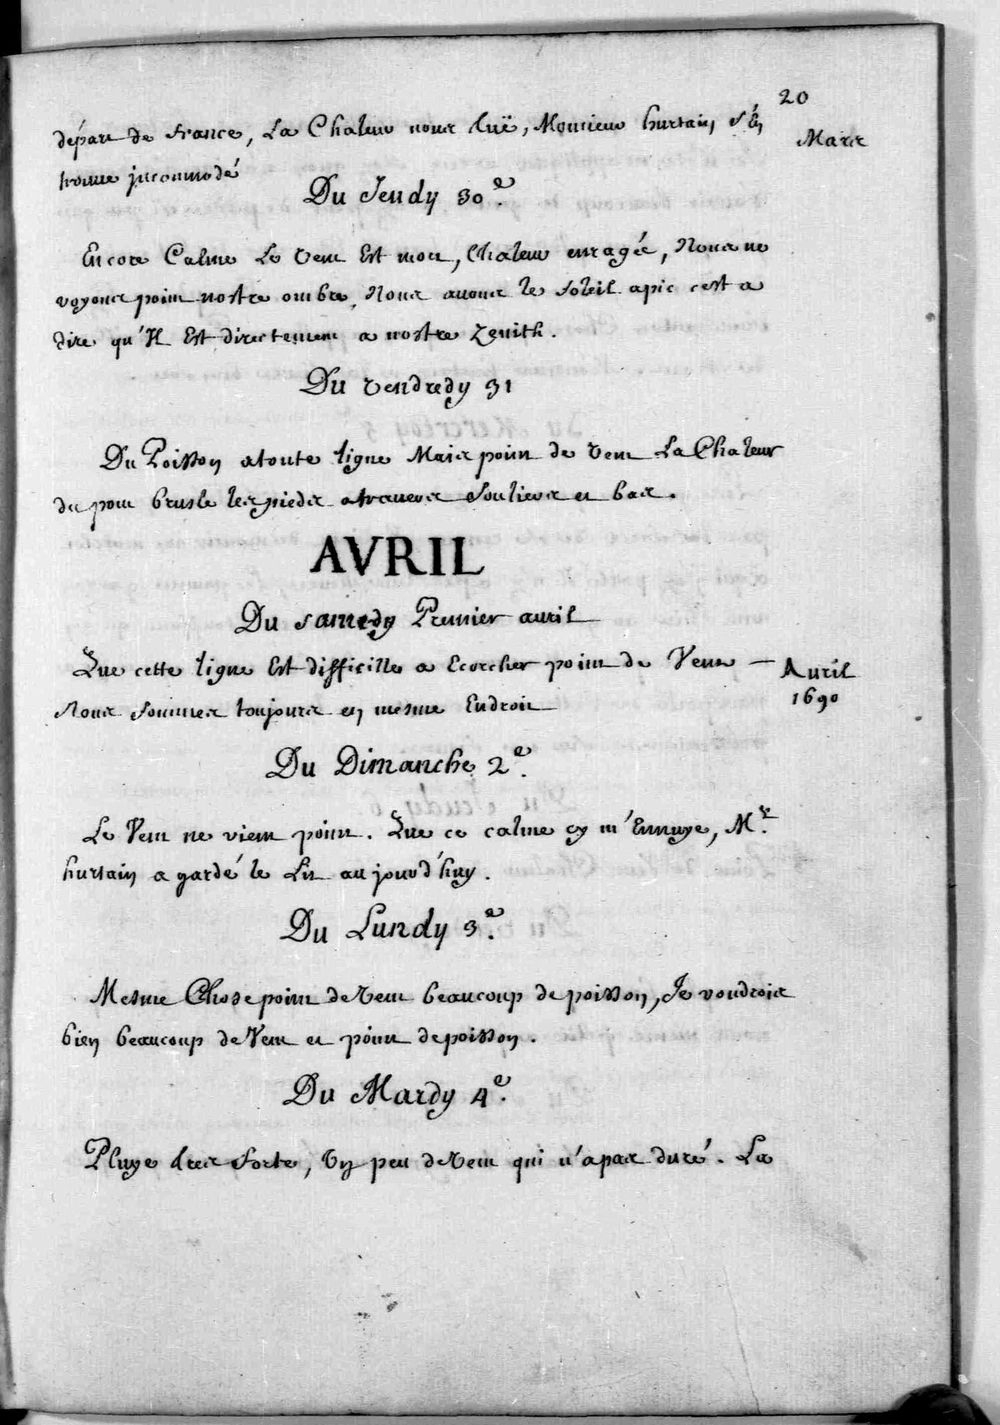 20
départ de france, La Chaleur nous tuë, Monsieur hurtain s'En
Mars
trouue jncommodé
Du Jeudy 30e.
Encore Calme Le vent Est mort, Chaleur enragée, Nous ne
voyons point nostre ombre, Nous auons le soleil apic c'est a
dire qu'Il Est directement a nostre Zenith.
Du vendredy 31
Du Poisson atoute ligne Mais point de vent La Chaleur
du pont brusle les pieds atrauers souliers et bas.
AVRIL
Du samedy Premier auril
Que cette ligne Est difficille a Ecorcher point de Vent —
Auril
1690
Nous sommes toujours en mesme Endroit
Du Dimanche 2e.
Le Vent ne vient point. Que ce calme cy m'Ennuye, Mr.
hurtain a gardé le Lit aujourd'huy.
Du Lundy 3e.
Mesme Chose point de vent beaucoup de poisson, Je voudrois
bien beaucoup de Vent et point de poisson.
Du Mardy 4e.
Pluye tres forte, Vn peu de vent qui n'a pas duré. La